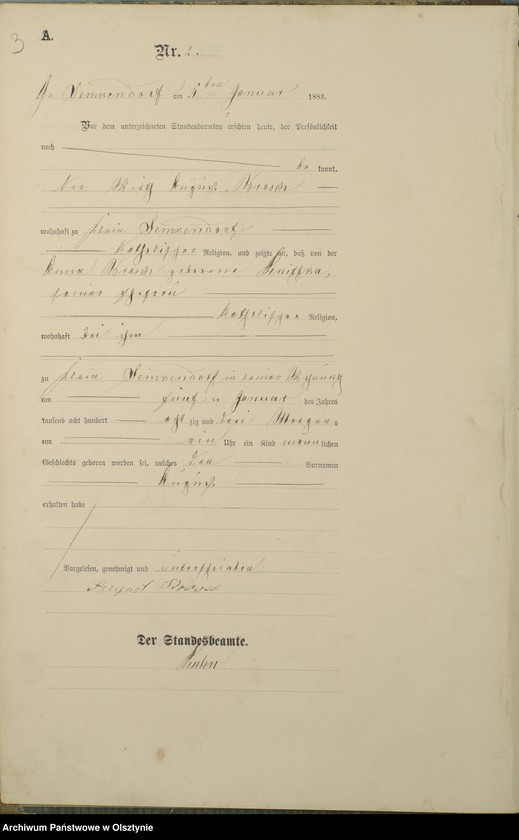 3
A.
Nr. 2.
am 5ten Januar 1883.
Vor dem unterzeichneten Standesbeamten erschien heute, der Persönlichkeit
nach
be kannt,
der August
wohnhaft zu Klein
katholischer Religion, und zeigte an, daß von der
Anna geborene
seiner Ehefrau
katholischer Religion,
wohnhaft bei ihm
zu Klein in seiner Wohnung
am fünften Januar des Jahres
tausend acht hundert acht zig und drei Morgens
um ein Uhr ein Kind männlichen
Geschlechts geboren worden sei, welches den Vornamen
August
erhalten habe
Vorgelesen, genehmigt und unterschrieben
August
Der Standesbeamte.
Archiwum Państwowe w Olsztynie